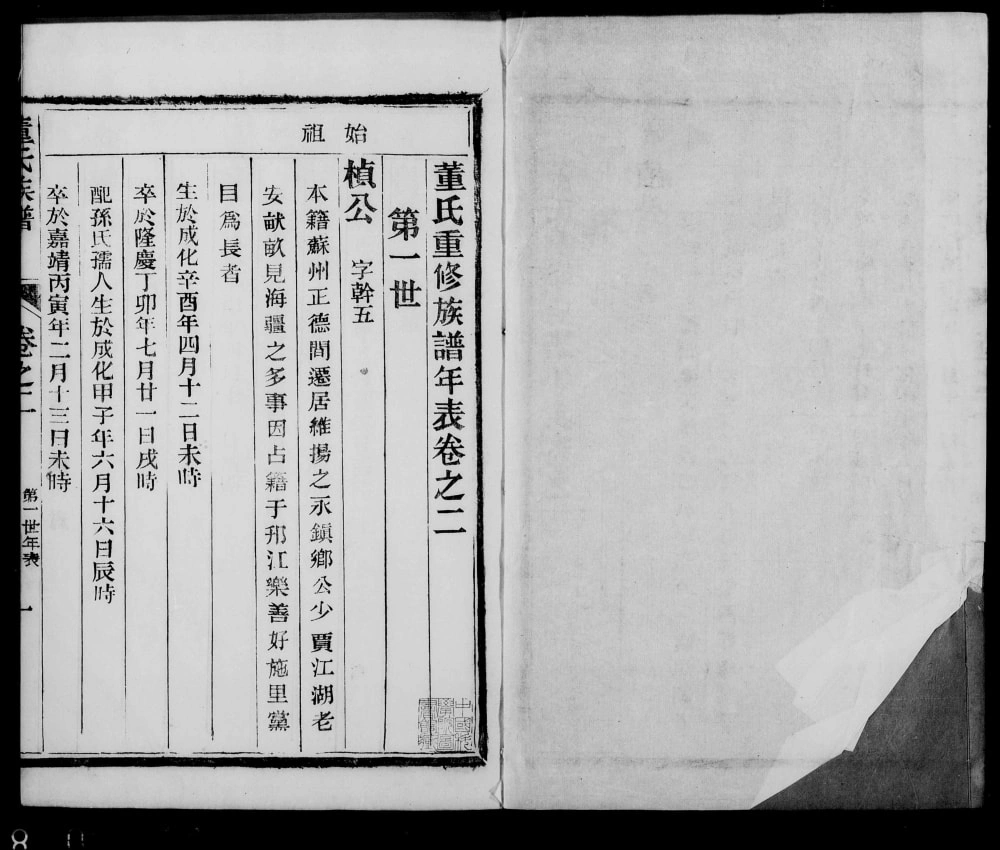 董氏重修族譜年表卷之二
第一世
始祖
楨公 字幹五
本籍蘇州正德間遷居維揚之永鎮鄉公少賈江湖老
安畎畝見海疆之多事因占籍于邗江樂善好施里黨
目爲長者
生於成化辛酉年四月十二日未時
卒於隆慶丁卯年七月廿一日戌時
配孫氏孺人生於成化甲子年六月十六日辰時
卒於嘉靖丙寅年二月十三日未時
董氏族譜 卷之二 第一世年表 一